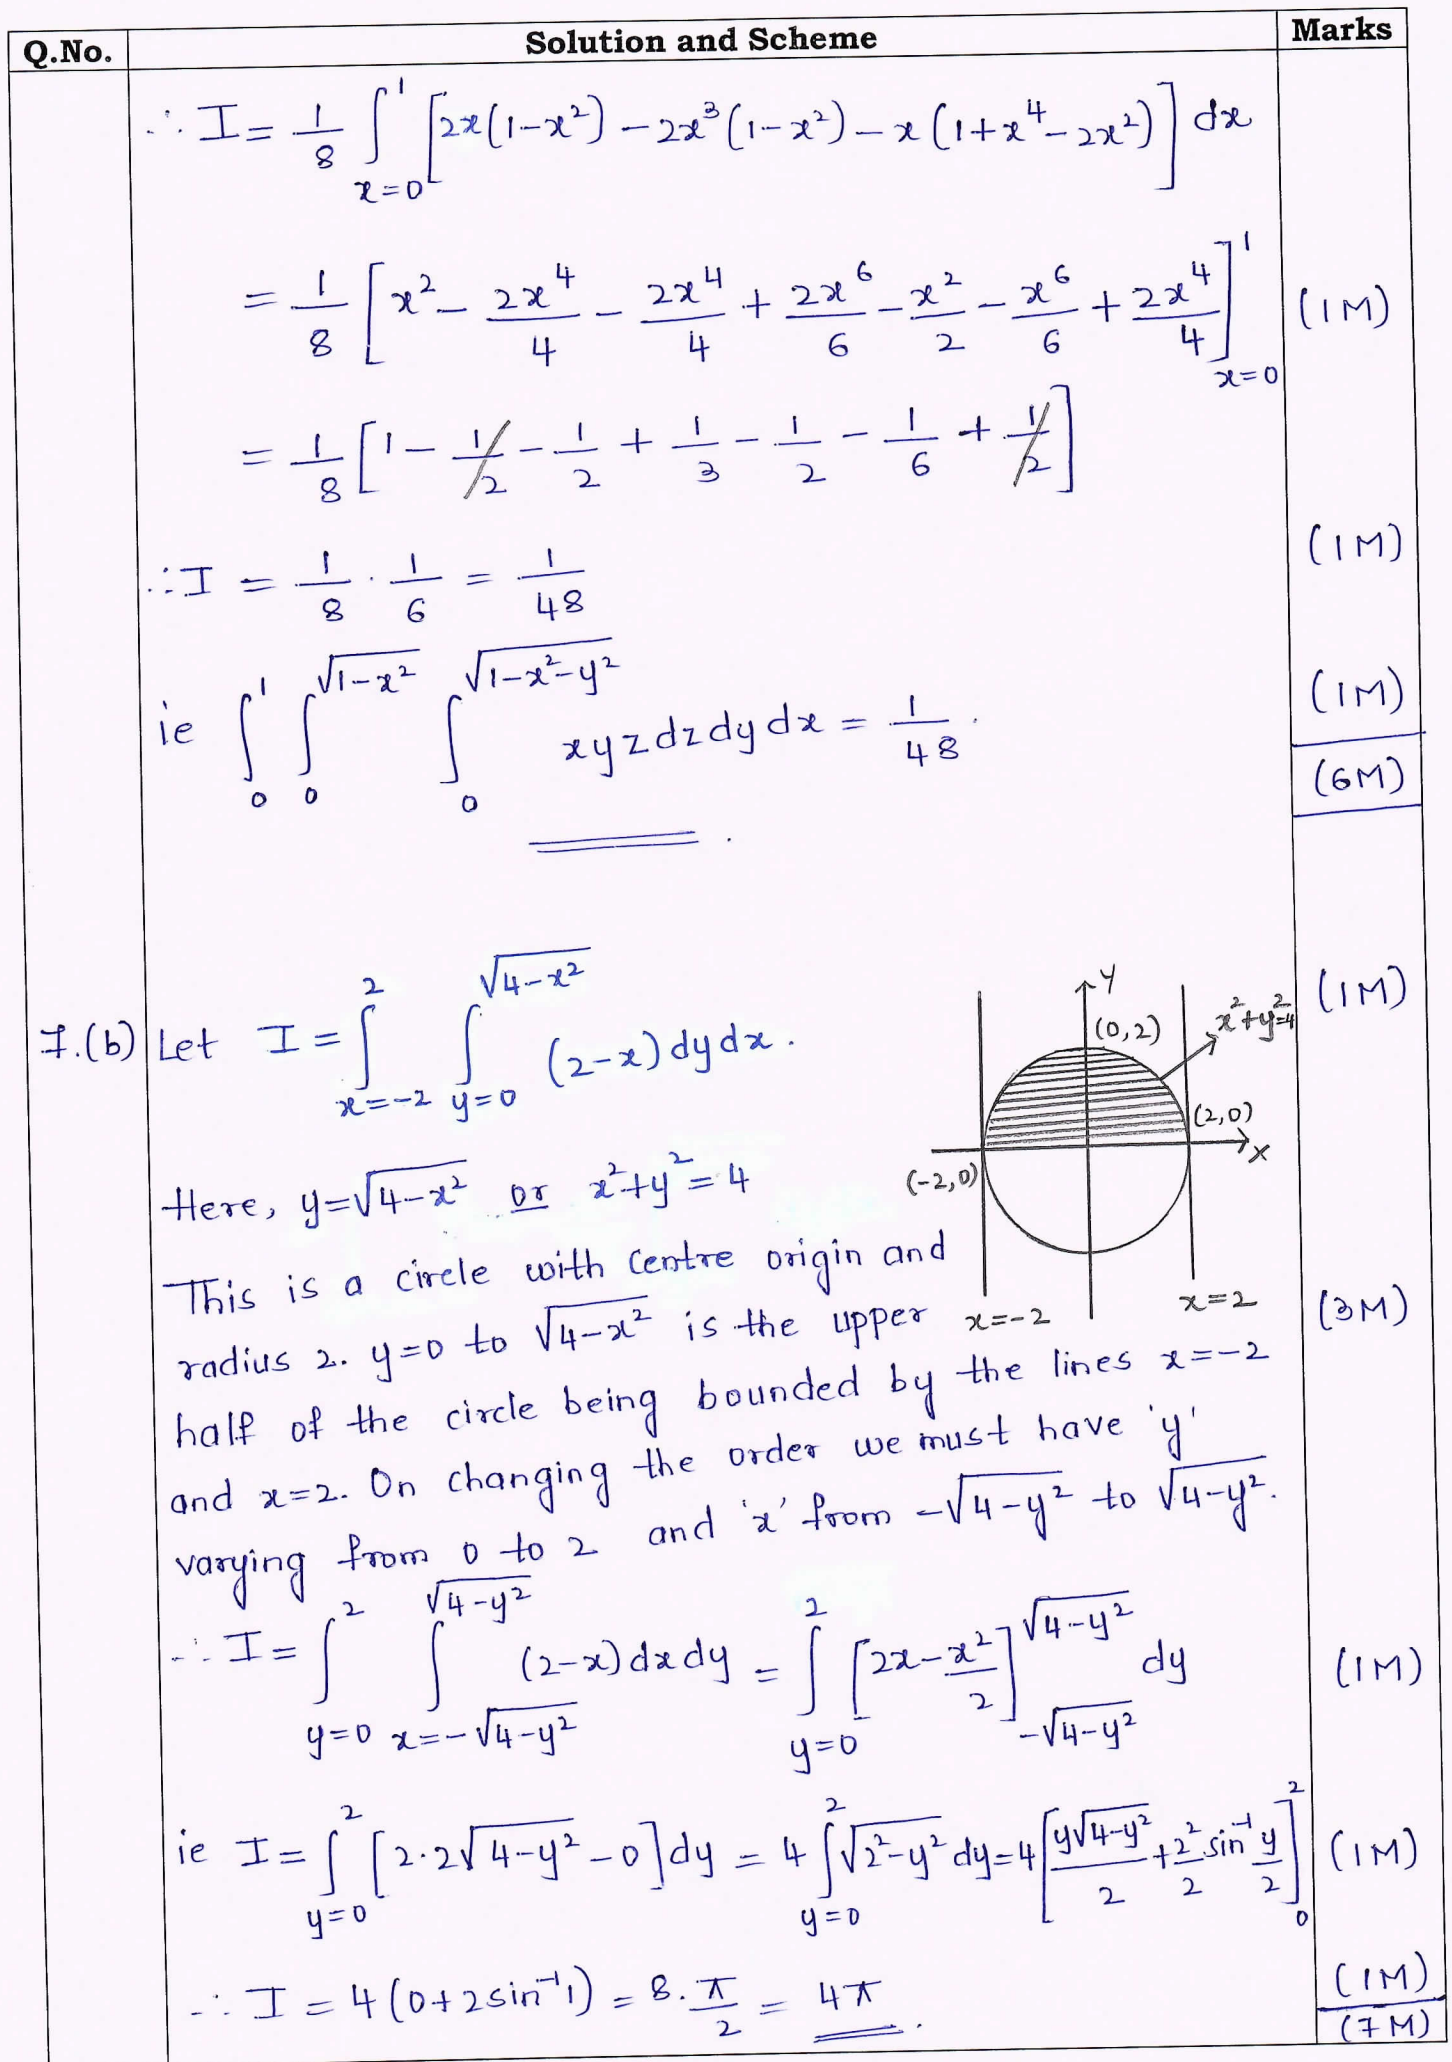 Q.No. Solution and Scheme Marks
∴ I = 1/8 ∫_{x=0}^{1} [2x(1-x²) - 2x³(1-x²) - x(1+x⁴-2x²)] dx
= 1/8 [x² - 2x⁴/4 - 2x⁴/4 + 2x⁶/6 - x²/2 - x⁶/6 + 2x⁴/4]_{x=0}^{1} (1M)
= 1/8 [1 - 1/2 - 1/2 + 1/3 - 1/2 - 1/6 + 1/2]
∴ I = 1/8 · 1/6 = 1/48 (1M)
ie ∫_0^1 ∫_0^{√1-x²} ∫_0^{√1-x²-y²} xyz dz dy dx = 1/48. (1M)
(6M)
7.(b) Let I = ∫_{x=-2}^{2} ∫_{y=0}^{√4-x²} (2-x) dy dx. (1M)
Y
(0,2)
x²+y²=4
(2,0)
X
(-2,0)
x=-2
x=2
Here, y=√4-x² or x²+y²=4
This is a circle with centre origin and
radius 2. y=0 to √4-x² is the upper (3M)
half of the circle being bounded by the lines x=-2
and x=2. On changing the order we must have 'y'
varying from 0 to 2 and 'x' from -√4-y² to √4-y².
∴ I = ∫_{y=0}^{2} ∫_{x=-√4-y²}^{√4-y²} (2-x) dx dy = ∫_{y=0}^{2} [2x - x²/2]_{-√4-y²}^{√4-y²} dy (1M)
ie I = ∫_{y=0}^{2} [2·2√4-y² - 0] dy = 4 ∫_{y=0}^{2} √2²-y² dy = 4 [y√4-y²/2 + 2²/2 sin⁻¹ y/2]_0^2 (1M)
∴ I = 4(0+2 sin⁻¹1) = 8·π/2 = 4π. (1M)
(7M)